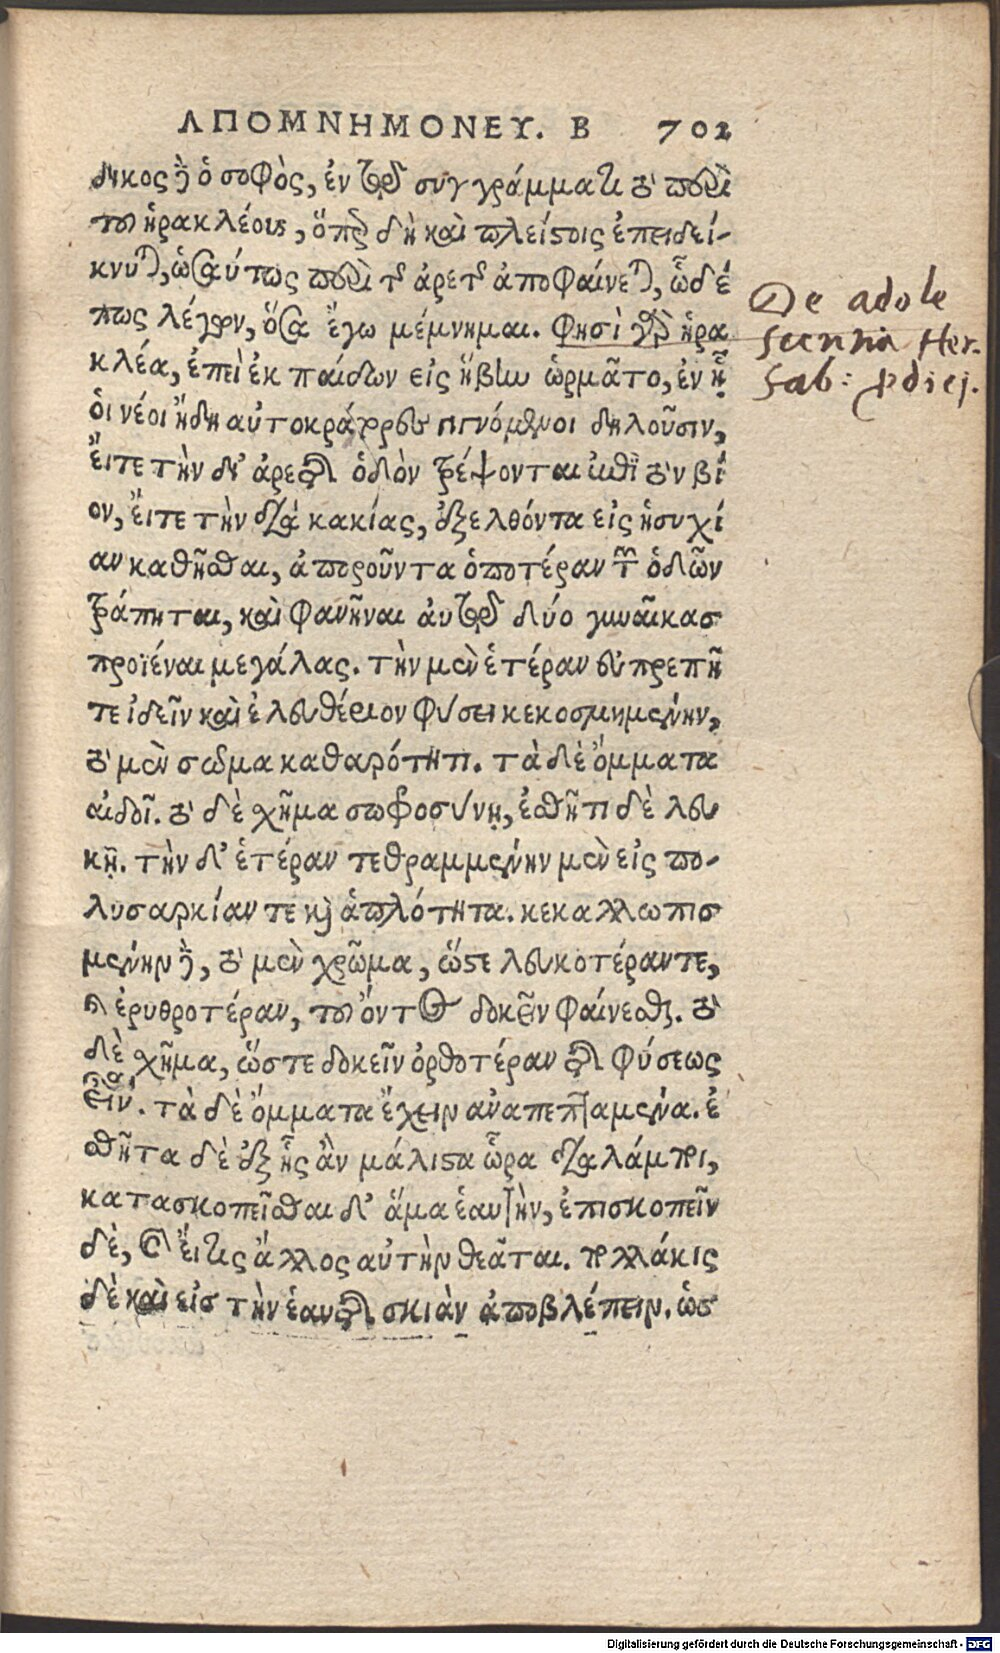 ΑΠΟΜΝΗΜΟΝΕΥ. Β 702
δικος δὲ ὁ σοφὸς, ἐν τῷ συγγράμματι τῷ περὶ
τοῦ ἡρακλέους, ὅπερ δὴ καὶ πλείστοις ἐπιδεί-
κνυται, ὡσαύτως περὶ τῆς ἀρετῆς ἀποφαίνεται, ὧδέ
πως λέγων, ὅσα ἔγω μέμνημαι. Φησὶ γὰρ ἡρα
κλέα, ἐπεὶ ἐκ παίδων εἰς ἥβην ὡρμᾶτο, ἐν ᾗ
ὁι νέοι ἤδη αὐτοκράτορες γιγνόμενοι δηλοῦσιν,
ἔιτε τὴν δι’ ἀρετῆς ὁδὸν τρέψονται ἐπὶ τὸν βί
ον, ἔιτε τὴν διὰ κακίας, ἐξελθόντα εἰς ἡσυχί
αν καθῆσθαι, ἀποροῦντα ὁποτέραν τῶν ὁδῶν
τράπηται, καὶ φανῆναι ἀυτῷ δύο γυναῖκασ
προϊέναι μεγάλας. τὴν μὲν ἑτέραν εὐπρεπῆ
τε ἰδεῖν καὶ ἐλευθέριον φύσει κεκοσμημένην,
τὸ μὲν σῶμα καθαρότητι. τὰ δὲ ὄμματα
αἰδοῖ. τὸ δὲ χῆμα σωφροσύνῃ, ἐσθῆτι δὲ λευ
κῇ. τὴν δ’ ἑτέραν τεθραμμένην μὲν εἰς πο-
λυσαρκίαν τε καὶ ἁπλότητα. κεκαλλωπισ
μένην δὲ, τὸ μὲν χρῶμα, ὥστε λευκοτέραν τε,
καὶ ἐρυθροτέραν, τοῦ ὄντος δοκεῖν φαίνεσθαι. τὸ
δὲ χῆμα, ὥστε δοκεῖν ὀρθοτέραν τῆς φύσεως
εἶναι. τὰ δὲ ὄμματα ἔχειν ἀναπεπταμένα. ἐ
σθῆτα δὲ ἐξ ἧς ἂν μάλιστα ὥρα διαλάμποι,
κατασκοπεῖσθαι δ’ ἅμα ἑαυτὴν, ἐπισκοπεῖν
δὲ, καὶ ἔι τις ἄλλος αὐτὴν θεᾶται. πολλάκις
δὲ καὶ εἰσ τὴν ἑαυτῆς σκιὰν ἀποβλέπειν. ὡσ
De adole
scentia Her.
fab: prodici.
Digitalisierung gefördert durch die Deutsche Forschungsgemeinschaft - DFG